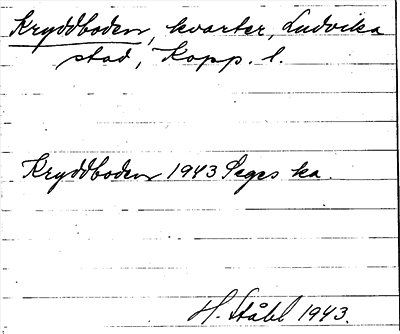 Kryddboden, kvarter, Ludvika
stad, Kopp. l.
Kryddboden 1943 Seges ka.
H. Ståhl 1943.